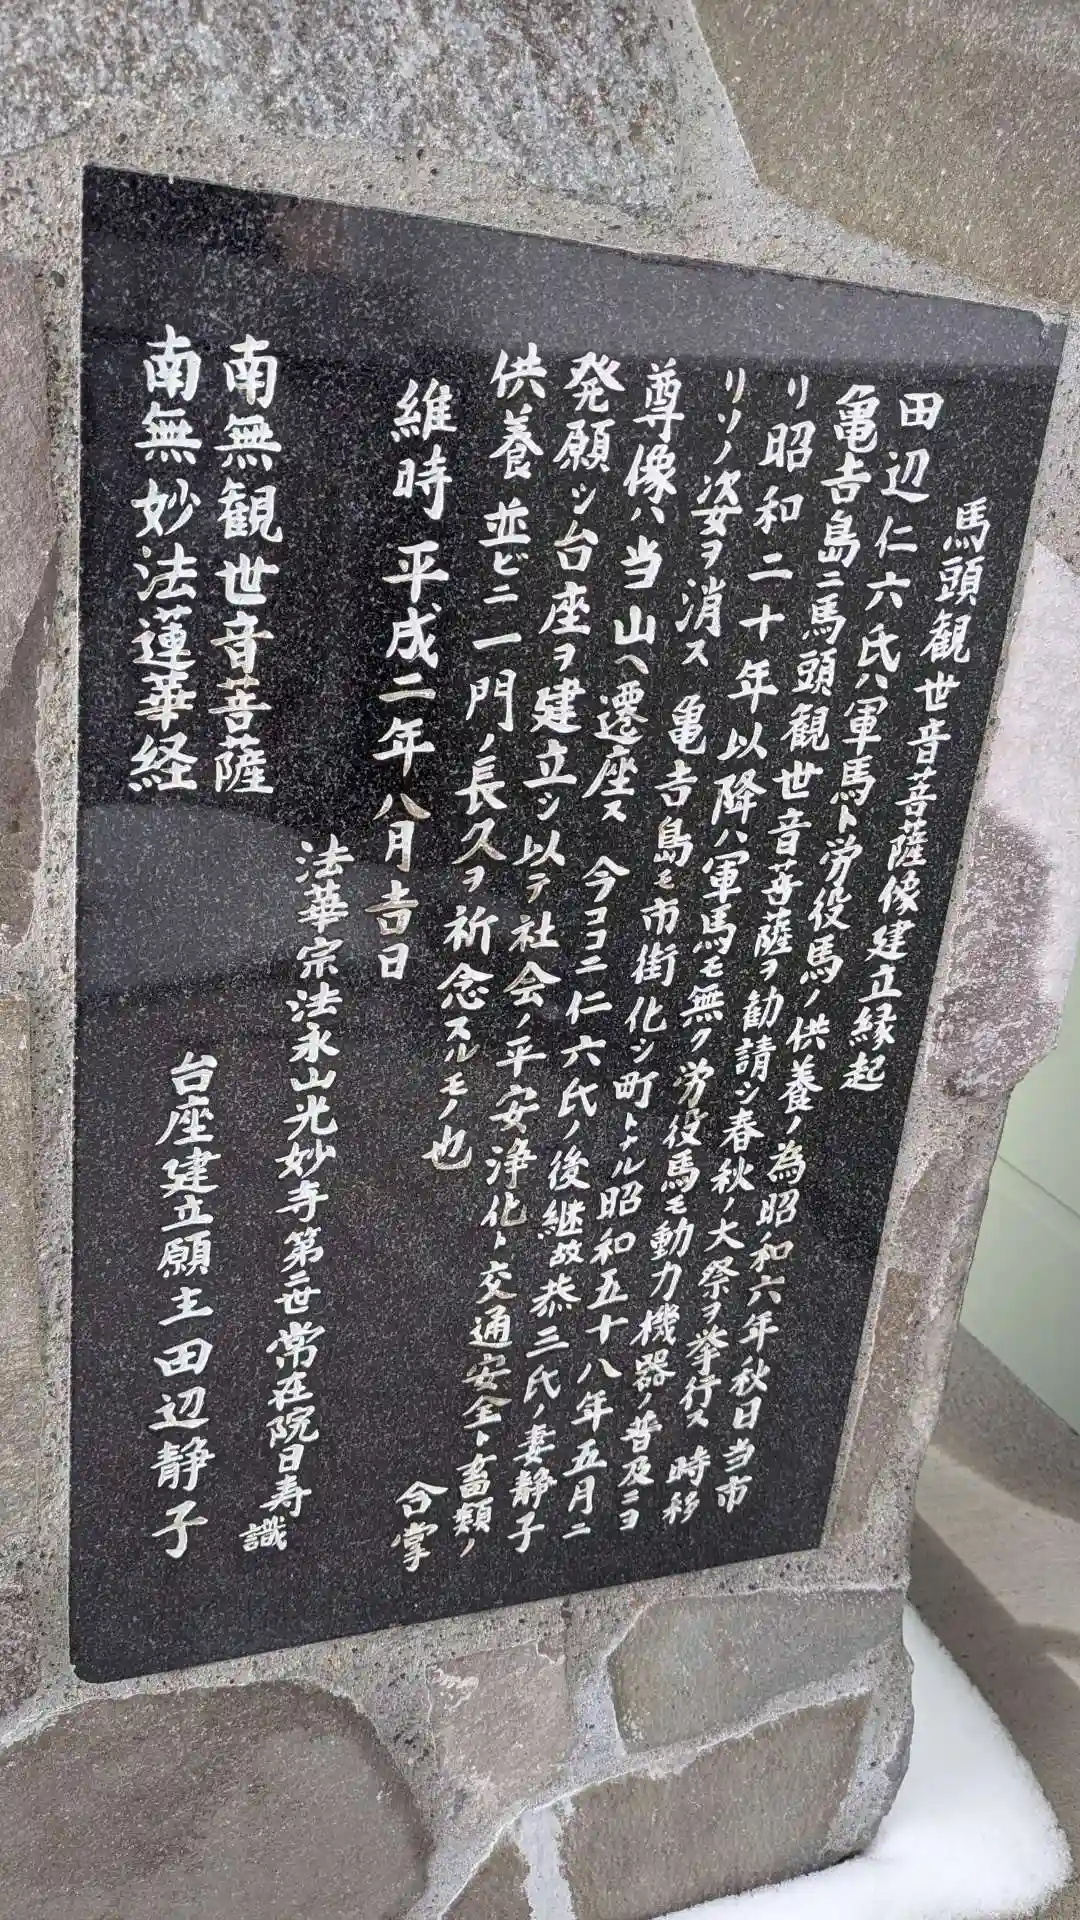 馬頭観世音菩薩像建立縁起
田辺仁六氏ハ軍馬ト労役馬ノ供養ノ為昭和六年秋日当市
亀吉島ニ馬頭観世音菩薩ヲ勧請シ春秋ノ大祭ヲ挙行ス 時移
リ昭和二十年以降ハ軍馬モ無ク労役馬モ動力機器ノ普及ニヨ
リソノ姿ヲ消ス 亀吉島モ市街化シ町トナル昭和五十八年五月ニ
尊像ハ当山ヘ遷座ス 今ココニ仁六氏ノ後継故恭三氏ノ妻静子
発願シ台座ヲ建立シ以テ社会ノ平安浄化ト交通安全ト畜類ノ
供養並ビニ一門ノ長久ヲ祈念スルモノ也 合掌
維時 平成二年八月吉日
法華宗法永山光妙寺第二世常在院日寿 識
南無観世音菩薩
南無妙法蓮華経
台座建立願主田辺静子